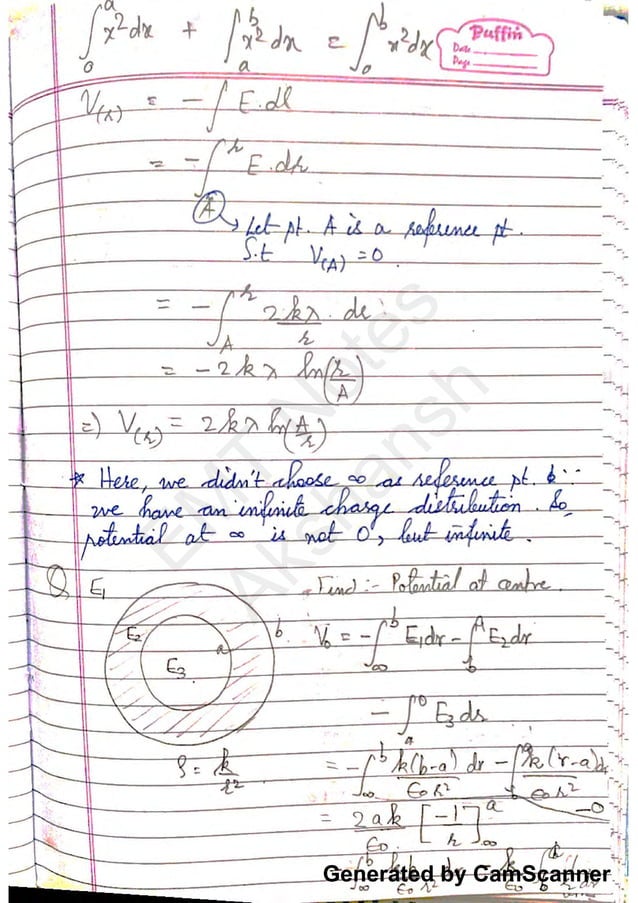 ∫₀ᵃ x²dx + ∫ₐᵇ x²dx = ∫₀ᵇ x²dx
Puffin
Date
Page
V(r) = -∫ E.dl
= -∫_A^r E.dr
Let pt. A is a reference pt.
S.t V(A) = 0
= -∫_A^r 2kλ/r . dr
= -2kλ ln(r/A)
=) V(r) = 2kλ ln(A/r)
* Here, we didn't choose ∞ as reference pt. ∵
we have an infinite charge distribution. So,
potential at ∞ is not 0, but infinite.
Q, E₁
Find :- Potential at centre.
E₂ a b
E₃
V₀ = -∫_∞^b E₁dr - ∫_b^A E₂dr
- ∫_a^0 E₃dr
ρ = k/r²
= -∫_∞^b k(b-a)/ε₀r² dr - ∫_b^a k(r-a)/ε₀r² dr - 0
= 2ak/ε₀ [-1/r]_∞^a
EMT Notes
Akshansh
Generated by CamScanner